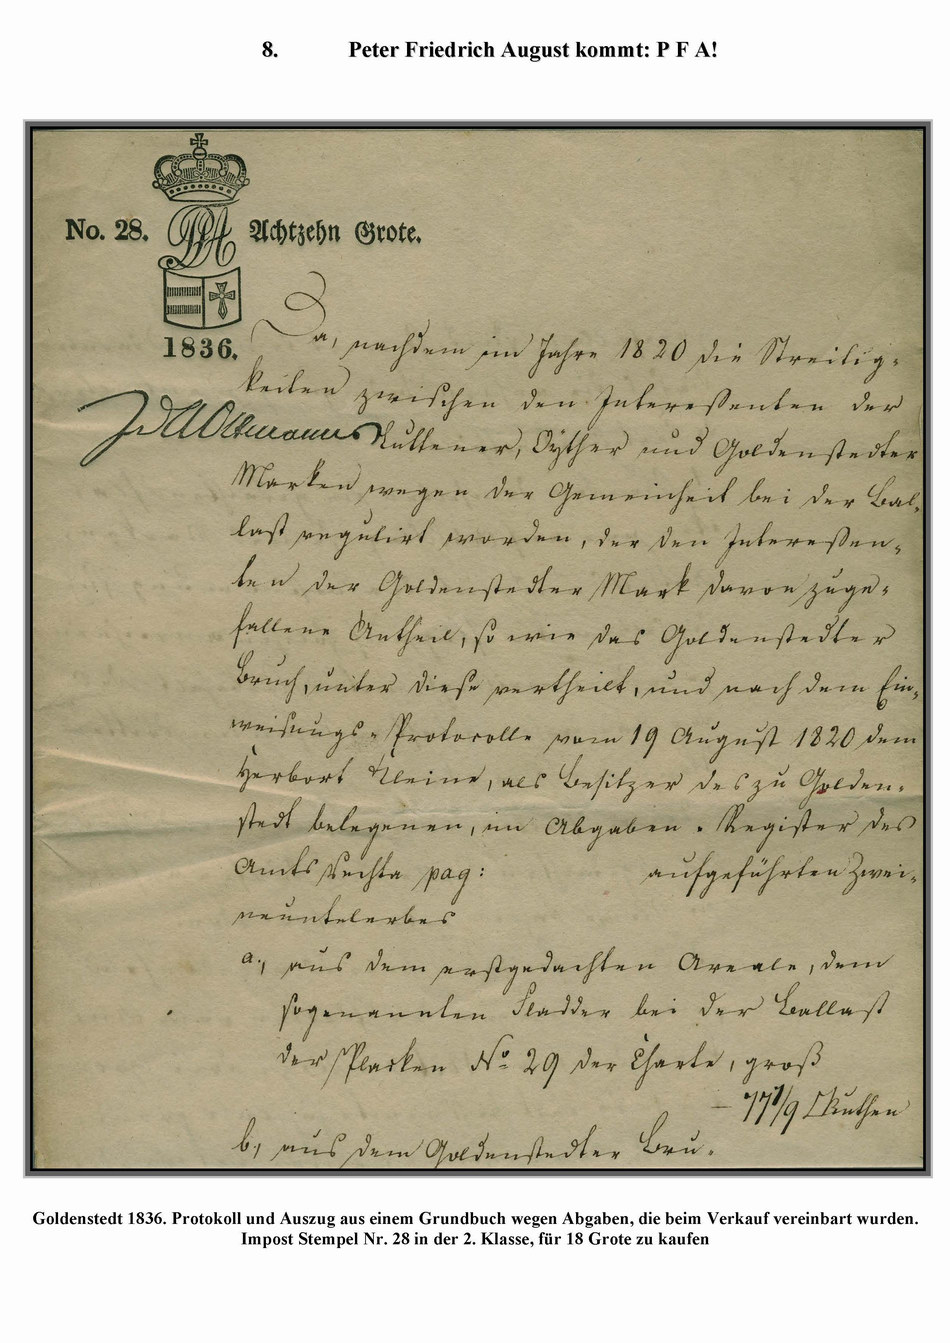 8. Peter Friedrich August kommt: P F A!
No. 28. PFA Achtzehn Grote.
1836.
Da, nachdem im Jahre 1820 die Streitig-
keiten zwischen den Interessenten der
Oltmanns Luttener, Oyther und Goldenstedter
Marken wegen der Gemeinheit bei der Bal-
last regulirt worden, der den Interessen-
ten der Goldenstedter Mark davon zuge-
fallene Antheil, so wie das Goldenstedter
Bruch, unter diese vertheilt, und nach dem Ein-
weisungs-Protocolle vom 19 August 1820 dem
Herbort Kleine, als Besitzer des zu Golden-
stedt belegenen, im Abgaben-Register des
Amts Vechta pag: aufgeführten Zwei-
neuntelerbes
a., aus dem erstgedachten Areale, dem
sogenannten Fladder bei der Ballast
der Placken No 29 der Charte, groß
– 77 1/9 □Ruthen
b, aus dem Goldenstedter Bru-
Goldenstedt 1836. Protokoll und Auszug aus einem Grundbuch wegen Abgaben, die beim Verkauf vereinbart wurden.
Impost Stempel Nr. 28 in der 2. Klasse, für 18 Grote zu kaufen